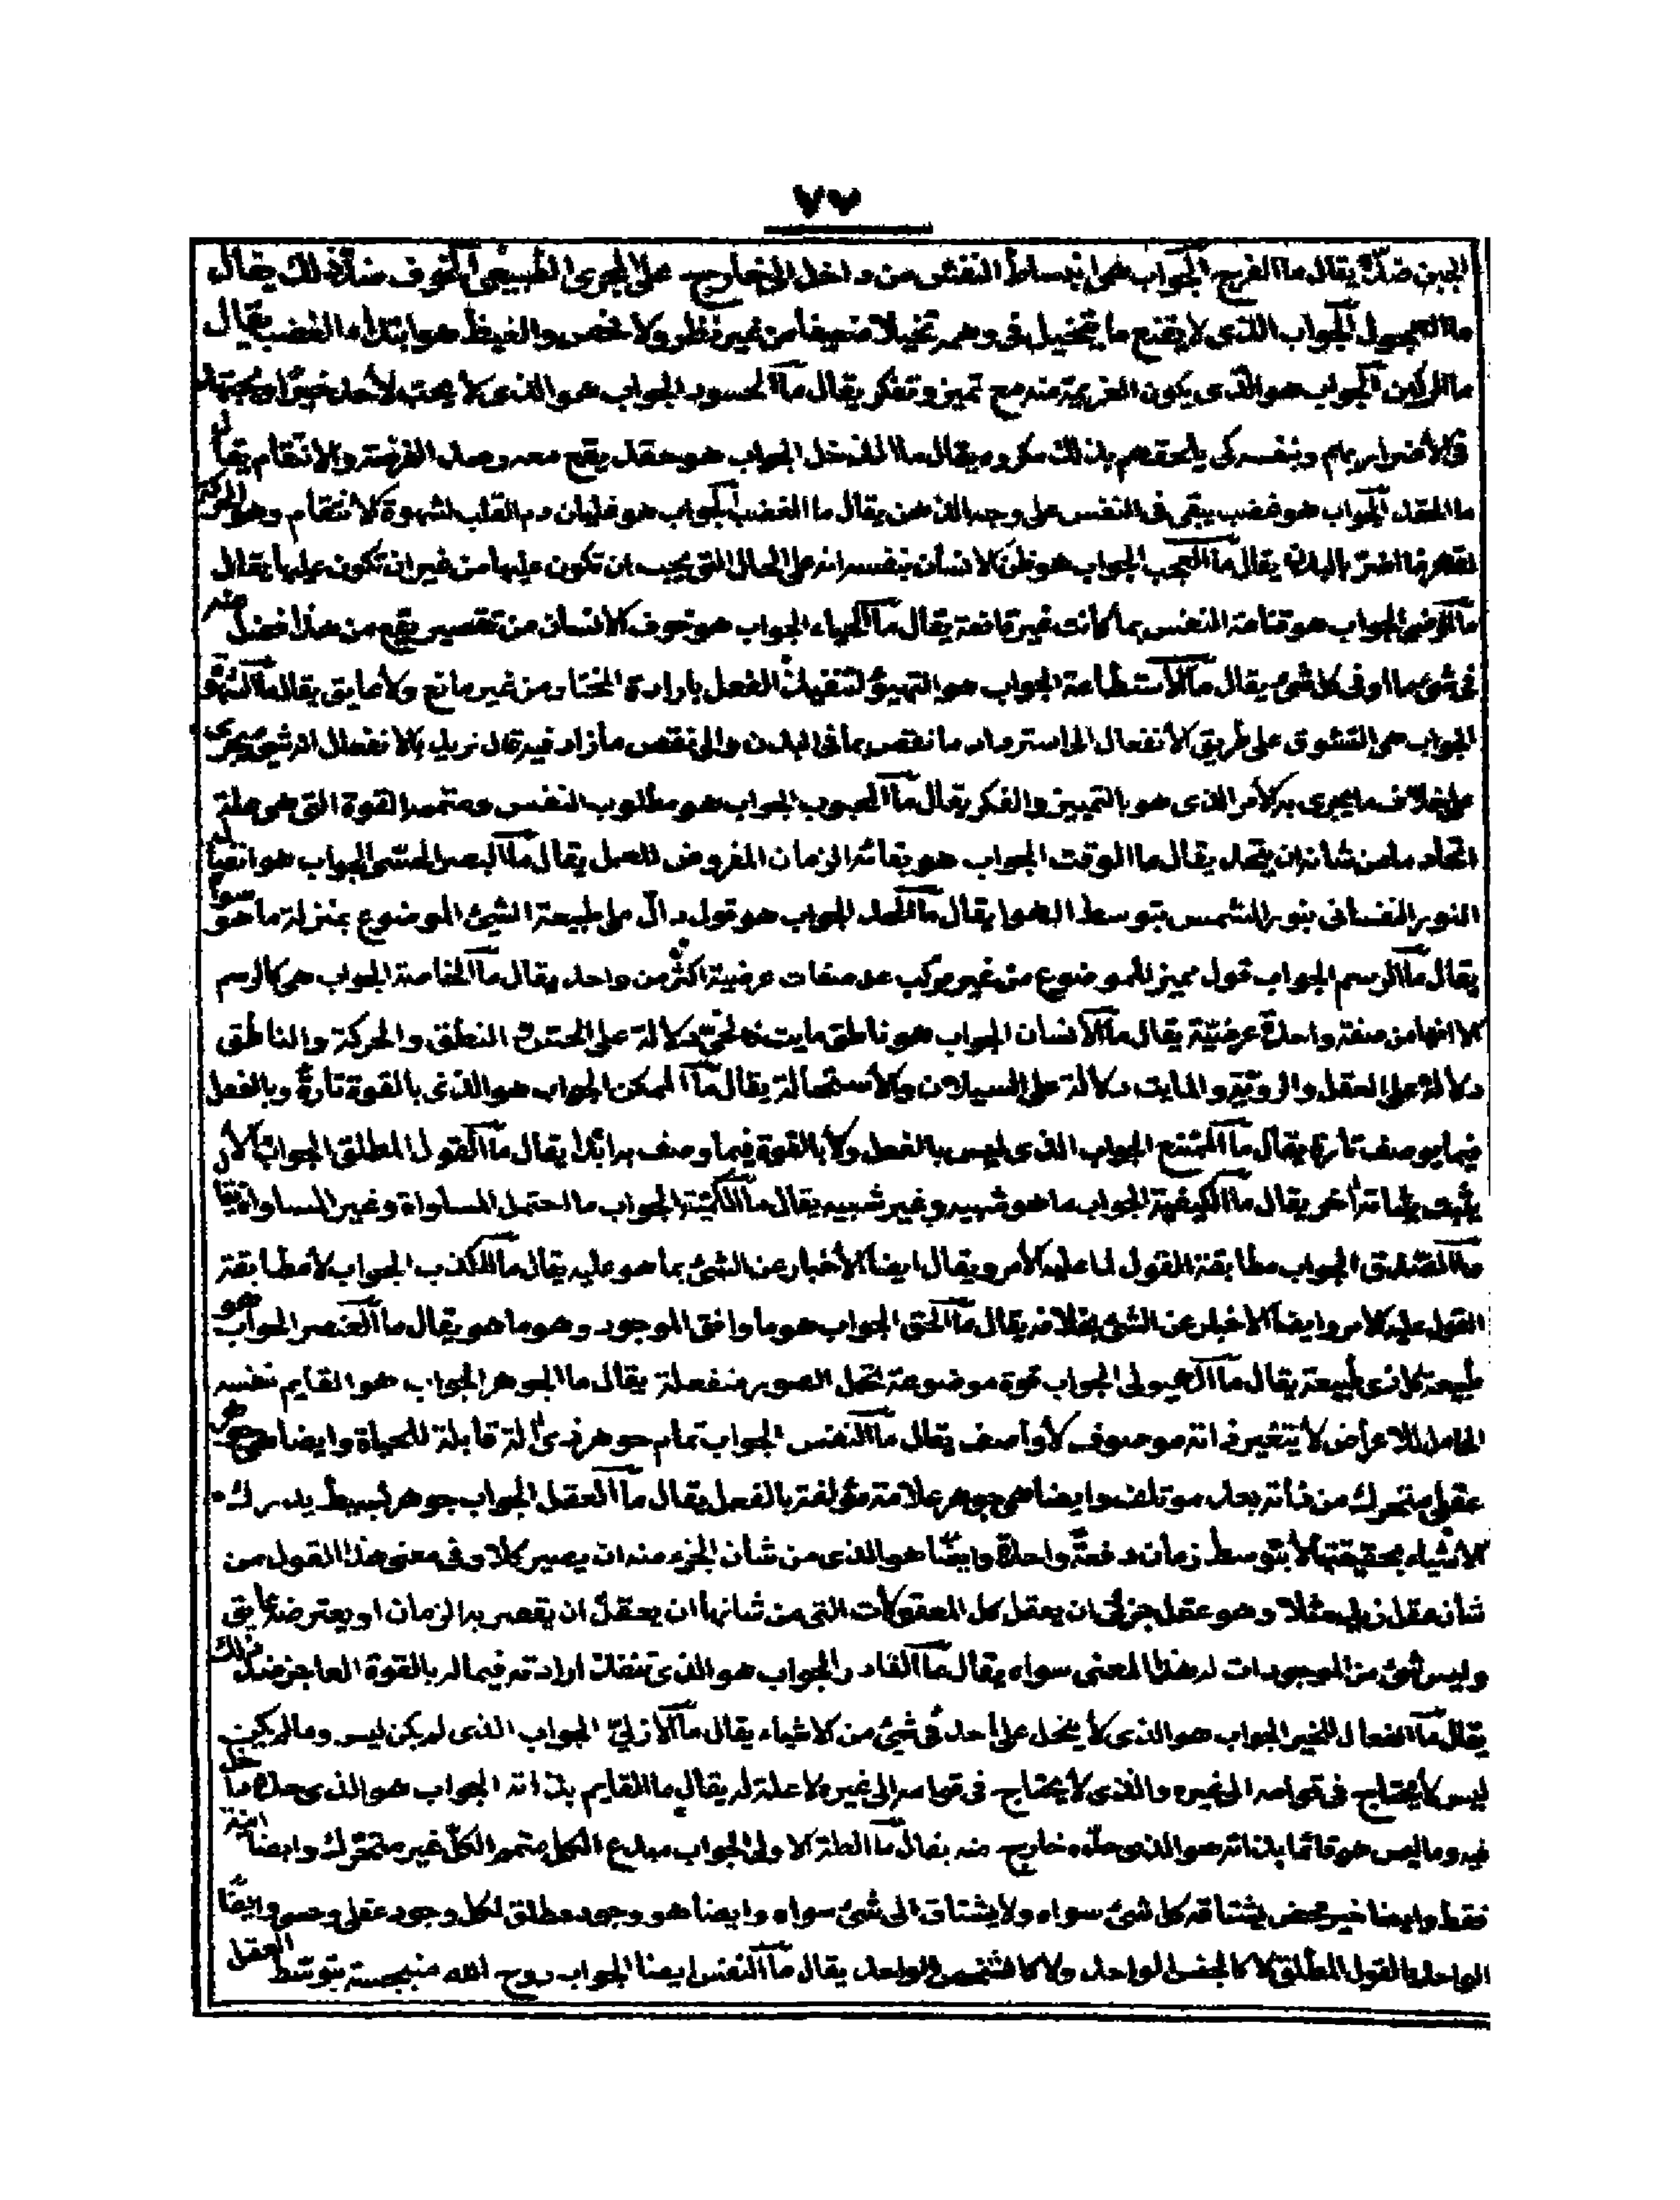 ٧٧
الجبن ضدّه يقال ما الفرح الجواب هو انبساط النفس من داخل الى خارج على المجرى الطبيعى الخوف ضدّ ذلك يقال
ما العجول الجواب الذى لا يقنع ما يتخيل فى وهمه تخيلا ضعيفا من غير نظر ولا فحص والغيظ هو ابتداء الغضب يقال
ما الركين الجواب هو الذى يكون العزيمة منه مع تميز وتفكر يقال ما الحسود الجواب هو الذى لا يحب لاحد خيرا ويجتهد
فى الاضرار بهم وبنفسه كى يلحقهم بذلك مكروه يقال ما الذحل الجواب هو حقد يقع معه رصد الفرصة والانتقام يقال
ما الحقد الجواب هو غضب يبقى فى النفس على وجه الدهر يقال ما الغضب الجواب هو غليان دم القلب لشهوة الانتقام وهو الحركة
لقهر ما اضرّ بالبدن يقال ما العجب الجواب هو ظن الانسان بنفسه انه على الحال التى يجب ان تكون عليها من غير ان تكون عليها يقال
ما الرضى الجواب هو قناعة النفس بما كانت غير قانعة يقال ما الحياء الجواب هو خوف الانسان من تقصير يقع من هذا افضل منه
فى شئ ما او فى كل شئ يقال ما الاستطاعة الجواب هو التهيؤ لتنفيذ الفعل بارادة المختار من غير مانع ولا عايق يقال ما الشهوة
الجواب هى التشوق على طريق الانفعال الى استرداد ما نقص بما فى البدن والى نقص ما زاد فيه قال نريد بالانفعال انه شئ يجرى
على خلاف ما يجرى به الامر الذى هو بالتمييز والفكر يقال ما المحبوب الجواب هو مطلوب النفس ومتممه القوة التى هو علة
اتحاد ما من شانه ان يتحد يقال ما الوقت الجواب هو بقائه الزمان المفروض للعمل يقال ما البصر الحسّى الجواب هو اتصال
النور النفسانى بنور الشمس بتوسط الهوا يقال ما الحد الجواب هو قول دالّ على طبيعة الشئ الموضوع بمنزلة ما هو سواء
يقال ما الرسم الجواب قول مميز للموضوع من غير مركب عد صفات عرضية اكثر من واحد يقال ما الخاصة الجواب هى كالرسم
الا انها من صفة واحدة عرضيّة يقال ما الانسان الجواب هو ناطق مايت فالحىّ دلالة على الحسّ النطق والحركة والناطق
دلالة على العقل والرويّة والمايت دلالة على السيلان والاستحالة يقال ما الممكن الجواب هو الذى بالقوة تارة وبالفعل
فيما يوصف تارة يقال ما الممتنع الجواب الذى ليس بالفعل ولا بالقوة فيما وصف به ابدا يقال ما القول المطلق الجواب الان
يثبت بثباته اخر يقال ما الكيفية الجواب ما هو شبيه وغير شبيه يقال ما الكميّة الجواب ما احتمل المساواة وغير المساواة يقال
ما الصدق الجواب مطابقة القول لما عليه الامر ويقال ايضا الاخبار عن الشئ بما هو عليه يقال ما الكذب الجواب لا مطابقة
القول عليه الامر وايضا الاخبار عن الشئ بخلافه يقال ما الحق الجواب هو ما وافق الموجود وهو ما هو يقال ما العنصر الجواب هو
طبيعة كل ذى طبيعة يقال ما الهيولى الجواب قوة موضوعة لحمل الصور منفعلة يقال ما الجوهر الجواب هو القايم بنفسه
الحامل للاعراض لا يتغير ذاته موصوف لا واصف يقال ما النفس الجواب تمام جوهر ذى الة قابلة للحياة وايضا هى جوهر
عقلى متحرك من ذاته بعدد مؤتلف وايضا هى جوهر علامة مؤلفة بالفعل يقال ما العقل الجواب جوهر بسيط يدرك
الاشياء بحقيقتها لا بتوسط زمان دفعة واحدة وايضا هو الذى من شان الجزء منه ان يصير كلا وفى معنى هذا القول من
شان عقل زيد مثلا وهو عقل جزئى ان يعقل كل المعقولات التى من شانها ان يعقل ان يقصر به الزمان او يعترضه عايق
وليس شئ من الموجودات له هذا المعنى سواه يقال ما القادر الجواب هو الذى تنفذ ارادته فيما له بالقوة العاجز ضد ذلك
يقال ما الفعال للخير الجواب هو الذى لا يبخل على احد فى شئ من الاشياء يقال ما الازلىّ الجواب الذى لم يكن ليس وما لم يكن
ليس لا يحتاج فى قوامه الى غيره والذى لا يحتاج فى قوامه الى غيره لا علة له يقال ما القايم بذاته الجواب هو الذى حده داخل
فيه وما ليس هو قائما بذاته هو الذى حدّه خارج منه يقال ما العلة الاولى الجواب مبدع الكل متمم الكلّ غير متحرك وايضا انيّة
فقط وايضا خير محض يشتاقه كل شئ سواه ولا يشتاق الى شئ سواه وايضا هو وجود مطلق لكل وجود عقلى وحسى وايضا
الواحد بالقول المطلق لا كالجنس الواحد ولا كالشخص الواحد يقال ما النفس ايضا الجواب روح الله منبجسة بتوسّط العقل